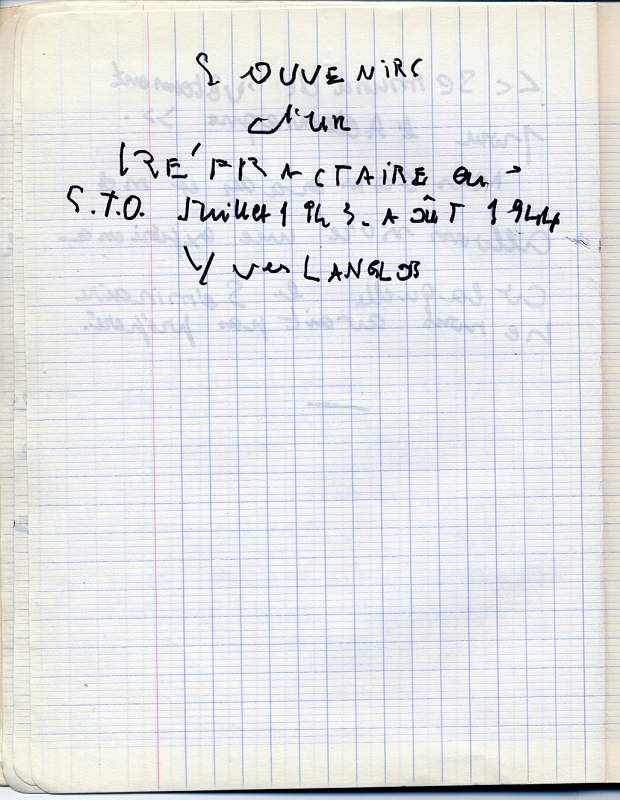 SOUVENIRS
d'un
RÉFRACTAIRE au
S.T.O. Juillet 1943. AOÛT 1944
Yves LANGLOIS